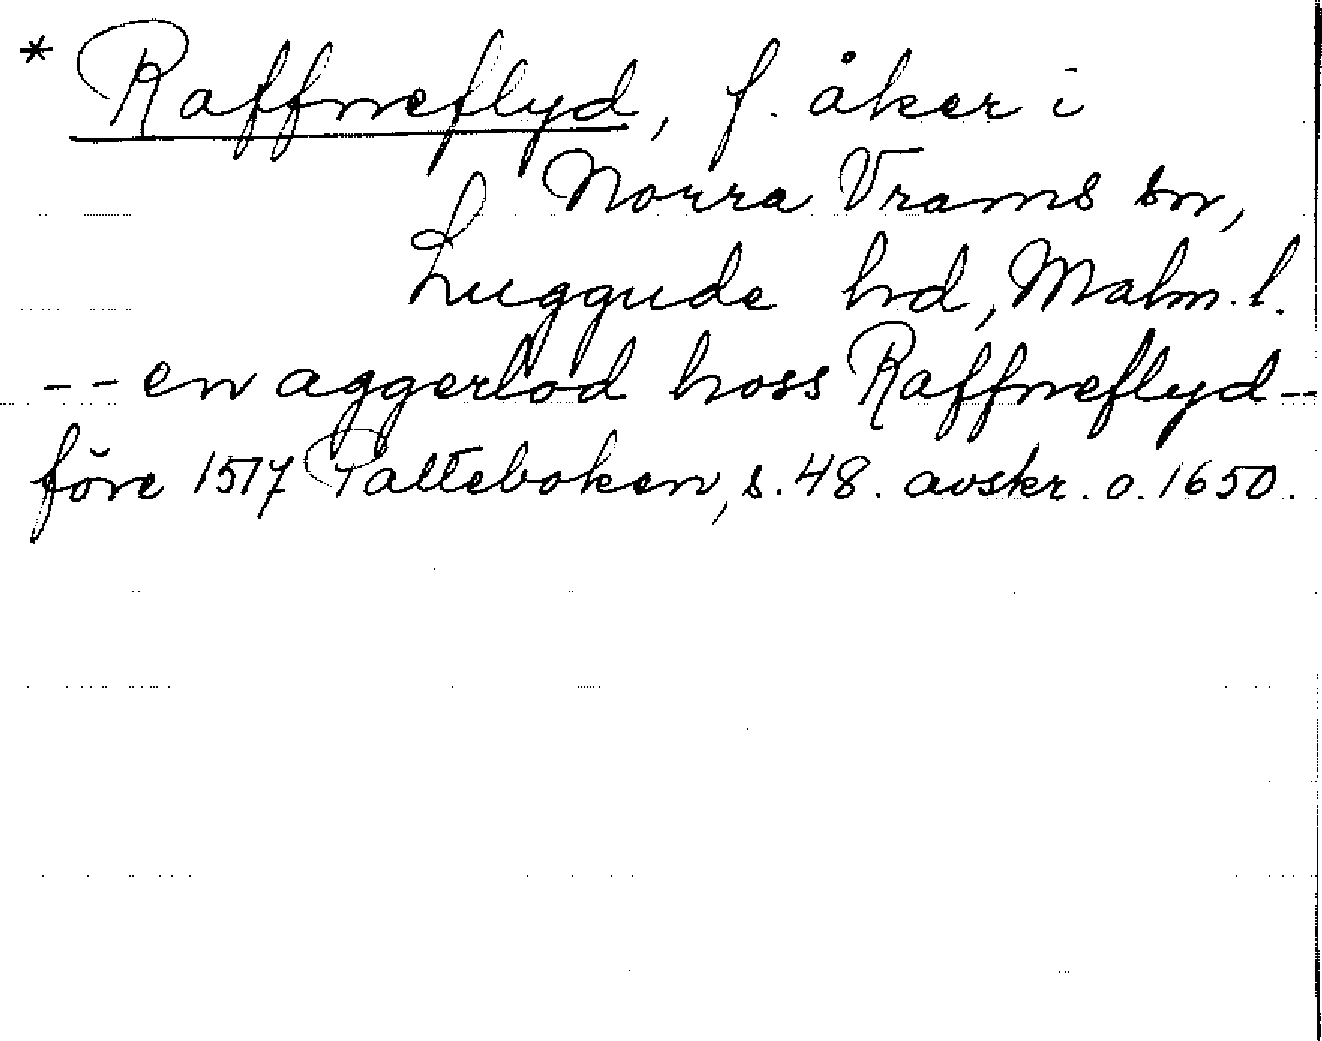 * Raffneflyd, f. åker i
Norra Vrams sn,
Luggude hd, Malm. l.
-- en aggerlod hoss Raffneflyd --
före 1517 Palteboken, s. 48. avskr. o. 1650.